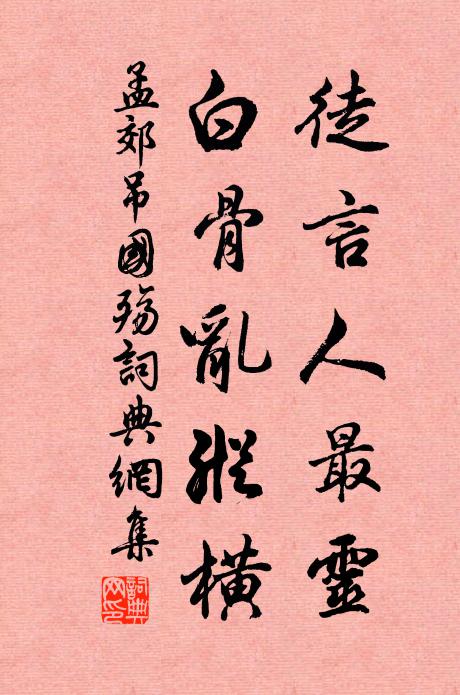 徒言人最靈
白骨亂縱橫
孟郊吊國殤詞典網集
詞典網印